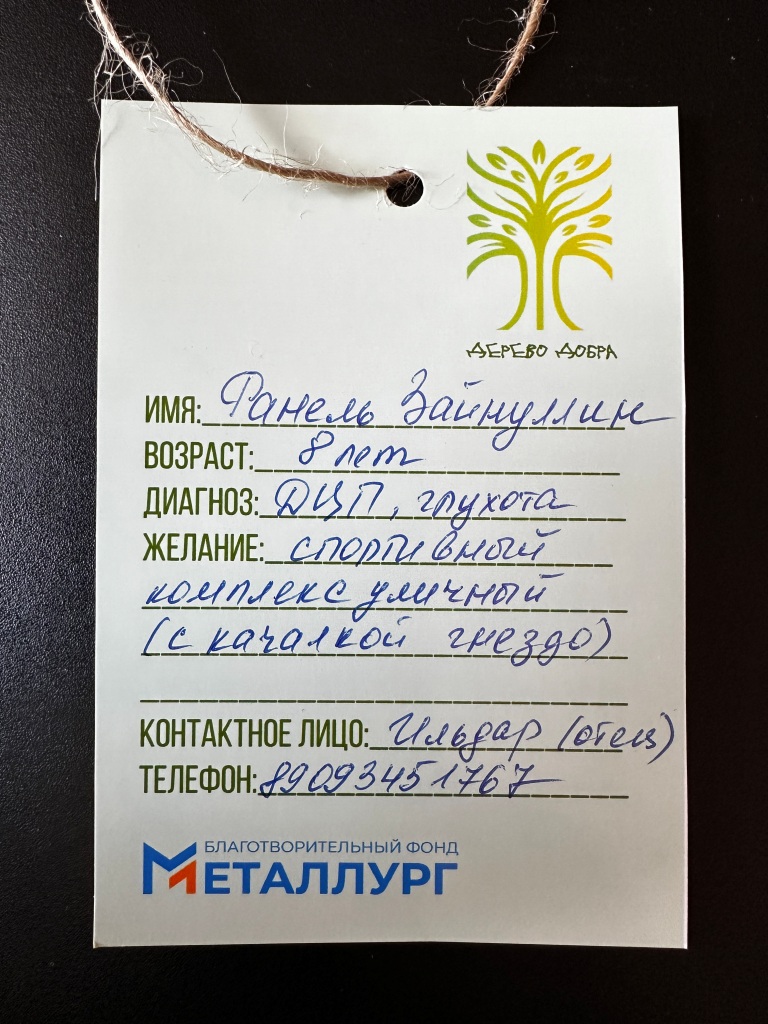 ДЕРЕВО ДОБРА
ИМЯ: Ранель Зайнуллин
ВОЗРАСТ: 8 лет
ДИАГНОЗ: ДЦП, глухота
ЖЕЛАНИЕ: спортивный
комплекс уличный
(с качалкой гнездо)
КОНТАКТНОЕ ЛИЦО: Ильдар (отец)
ТЕЛЕФОН: 89093451767
БЛАГОТВОРИТЕЛЬНЫЙ ФОНД
МЕТАЛЛУРГ